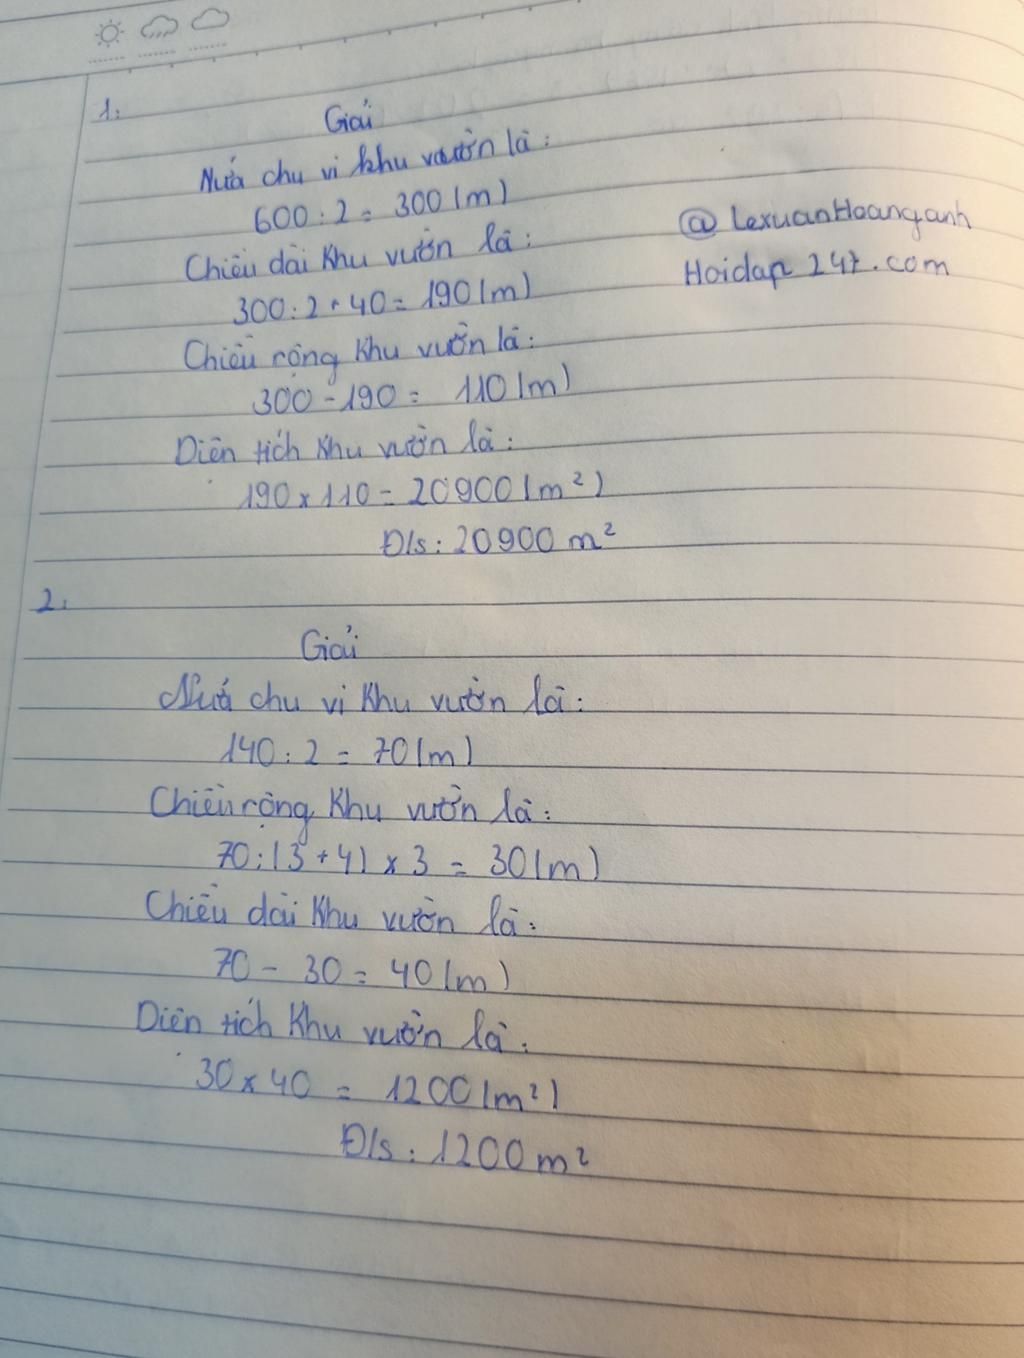 1.
Giải
Nửa chu vi khu vườn là:
600 : 2 = 300 (m)
@ LexuanHoanganh
Chiều dài khu vườn là:
Hoidap 247.com
300 : 2 + 40 = 190 (m)
Chiều rộng khu vườn là:
300 - 190 = 110 (m)
Diện tích khu vườn là:
190 x 110 = 20900 (m²)
Đ/s: 20900 m²
2.
Giải
Nửa chu vi khu vườn là:
140 : 2 = 70 (m)
Chiều rộng khu vườn là:
70 : (3 + 4) x 3 = 30 (m)
Chiều dài khu vườn là:
70 - 30 = 40 (m)
Diện tích khu vườn là:
30 x 40 = 1200 (m²)
Đ/s: 1200 m²